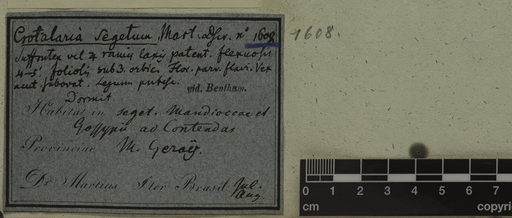 Crotalaria segetum Mart. Obs. nº 1608
1608.
Suffrutex vel 4 ramis laxis patent. flexuosis
4-5'. foliolis sub 3. orbic. Flor. parv. flavi. Vex
Legum. pubesc.
vid. Bentham.
Dormit
Habitat in seget. Mandioccae et
Gossypii ad Contendas
Provinciae M. Geraës.
Dr. Martius Iter Brasil. Jul.
Aug.
0 1 2 3 4 5 6 7
cm copyri